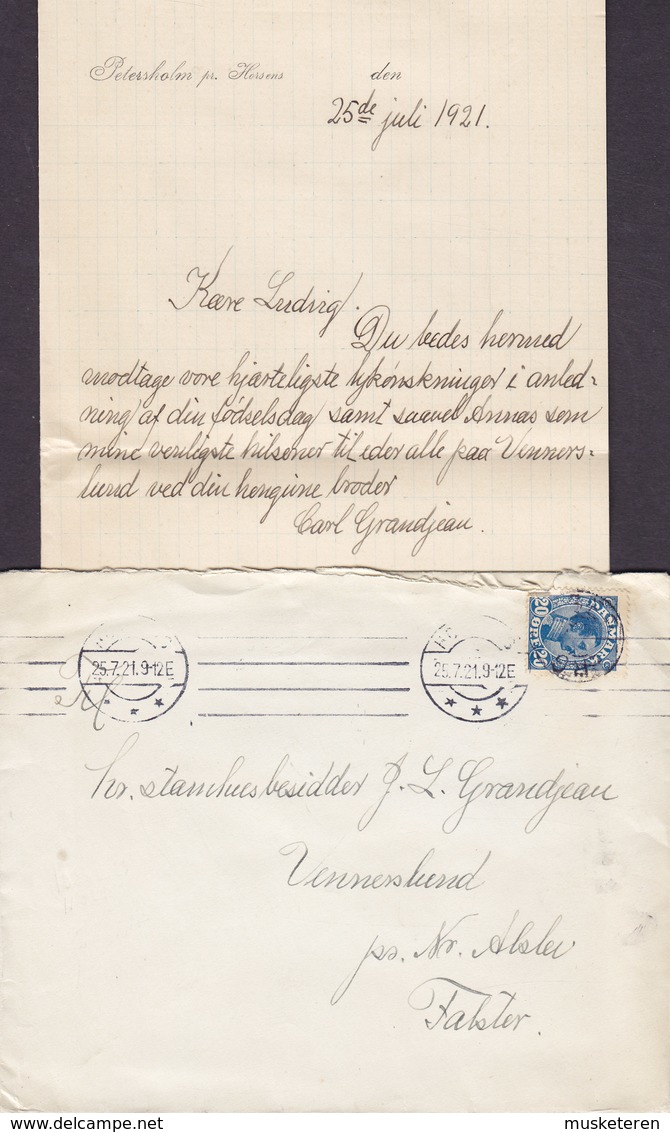 Petersholm pr. Horsens den
25de juli 1921.
Kære Ludvig.
Du bedes hermed
modtage vore hjærteligste lykønskninger i anled=
ning af din fødselsdag samt saavel Annas som
mine venligste hilsener til eder alle paa Venners=
lund ved din hengivne broder
Carl Grandjean.
DANMARK
20 ØRE 20
25.7.21.9-12E
25.7.21.9-12E
hr. stamhusbesidder J. L. Grandjean
Vennerslund
pr. Nr. Alslev
Falster.
delcampe.net
musketeren